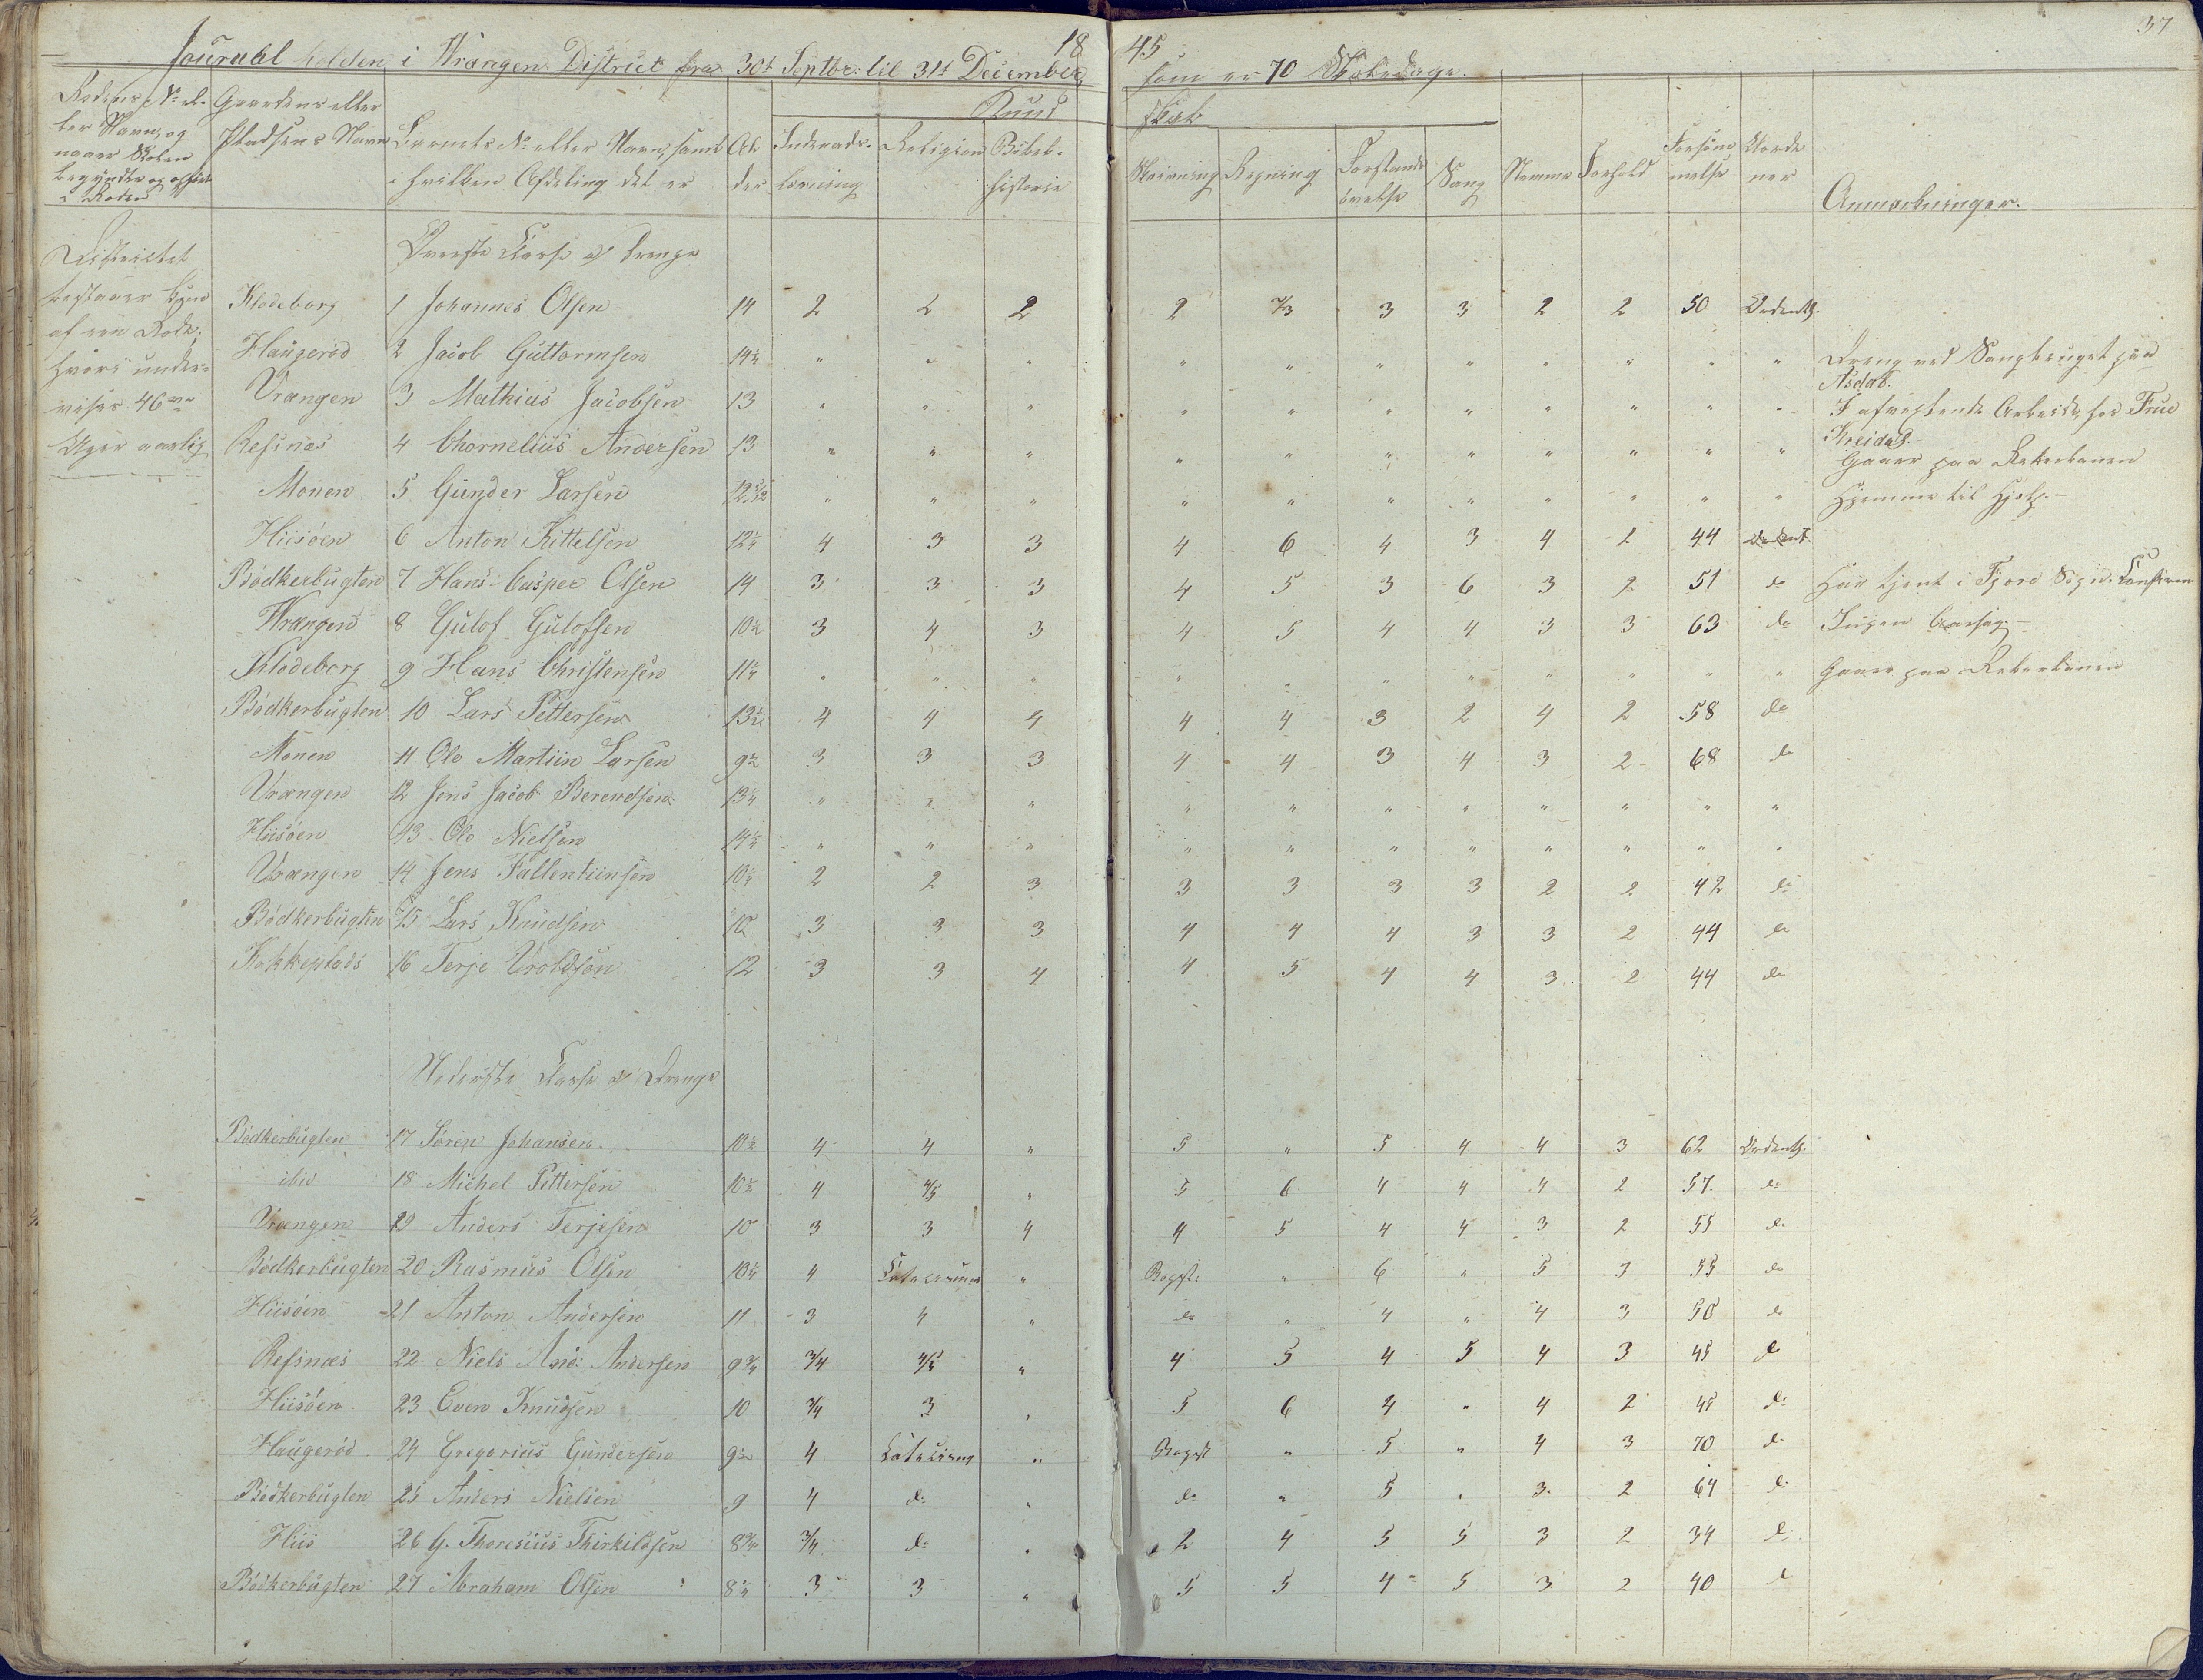 37
Journal holden i Wrangen District fra 30t Septbr. til 31t December 1845 som er 70 Skoledage.
Rodens No el- Gaardens eller Kund skab
ler Navn, og Pladsens Navn Barnets No eller Navn, samt Al Indenads- Religion Bibel- Skrivning Regning Forstands Sang Nemme Forhold Forsøm Orde
naar Skolen i hvilken Afdeling det er der læsning historie øvelse melse ner Anmærkninger.
begyndte og
i Roden
Districtet Øverste Classe a/ Drenge
bestaaer kun Klodeborg 1 Johannes Olsen 14 2 2 2 2 2/3 3 3 2 2 50 Ordentl.
af een Rode, Haugerød 2 Jacob Guttormsen 14¼ " " " " " " " " " " " Dreng ved Saugbruget paa
hvori under- Asdal.
vises 46 Vrangen 3 Mathias Jacobsen 13 " " " " " " " " " " " I Arbeide hos Frue
Uger aarlig Kreidal.
Refsnæs 4 Chornelius Andersen 13 " " " " " " " " " " " Gaaer paa Reberbanen
Monen 5 Gunder Larsen 12 " " " " " " " " " " " Hjemme til Hjelp.-
Hiisøen 6 Anton Kittelsen 12¼ 4 3 3 4 6 4 3 4 2 44
Bødkerbugten 7 Hans Casper Olsen 14 3 3 3 4 5 3 6 3 2 51 do Har tjent i Fjære Sogn.
Wrangen 8 Gulof Gulofsen 10½ 3 4 3 4 5 4 4 3 3 63 do Ingen Aarsag.-
Klodeborg 9 Hans Christensen 11¼ " " " " " " " " " " " Gaaer paa Reberbanen
Bødkerbugten 10 Lars Pettersen 13½ 4 4 4 4 4 3 2 4 2 58 do
Monen 11 Ole Martiin Larsen 9½ 3 3 3 4 4 3 4 3 2 68 do
Vrangen 12 Jens Jacob Berendsen 13¼ " " " " " " " " " " "
Hiisøen 13 Ole Nielsen 14¼ " " " " " " " " " " "
Vrangen 14 Jens Fallentiinsen 10¼ 2 2 3 3 3 3 3 2 2 42 do
Bødkerbugten 15 Lars Knudsen 10 3 3 3 4 4 4 3 3 2 44 do
Kokkeplads 16 Terje Uroldsen 12 3 3 4 4 5 4 4 3 2 44 do
Nederste Classe a/ Drenge
Bødkerbugten 17 Søren Johansen 10½ 4 4 " 5 " 5 4 4 3 62 Ordentl.
ibid 18 Michel Pettersen 10½ 4 4/5 " 5 6 4 4 4 2 57 do
Vrangen 19 Anders Terjesen 10 3 3 4 4 5 4 4 3 2 55 do
Bødkerbugten 20 Rasmus Olsen 10¼ 4 Catecismus " Bogst. " 6 " 5 3 55 do
Hiisøen 21 Anton Andersen 11 3 4 " do " 4 " 4 3 50 do
Refsnæs 22 Niels Andersen 9¾ 3/4 4/5 " 4 5 4 5 4 3 45 do
Hiisøen 23 Even Knudsen 10 3/4 3 " 5 6 4 " 4 2 45 do
Haugerød 24 Gregorius Gundersen 9½ 4 Catecism " Bogst " 5 " 4 3 70 do
Bødkerbugten 25 Anders Nielsen 9 4 do " do " 5 " 3 2 64 do
Hiis 26 G. Thoresius Thirkildsen 8¾ 3/4 do " 2 4 5 5 3 2 34 do
Bødkerbugten 27 Abraham Olsen 8¼ 3 3 " 5 5 4 5 3 2 40 do